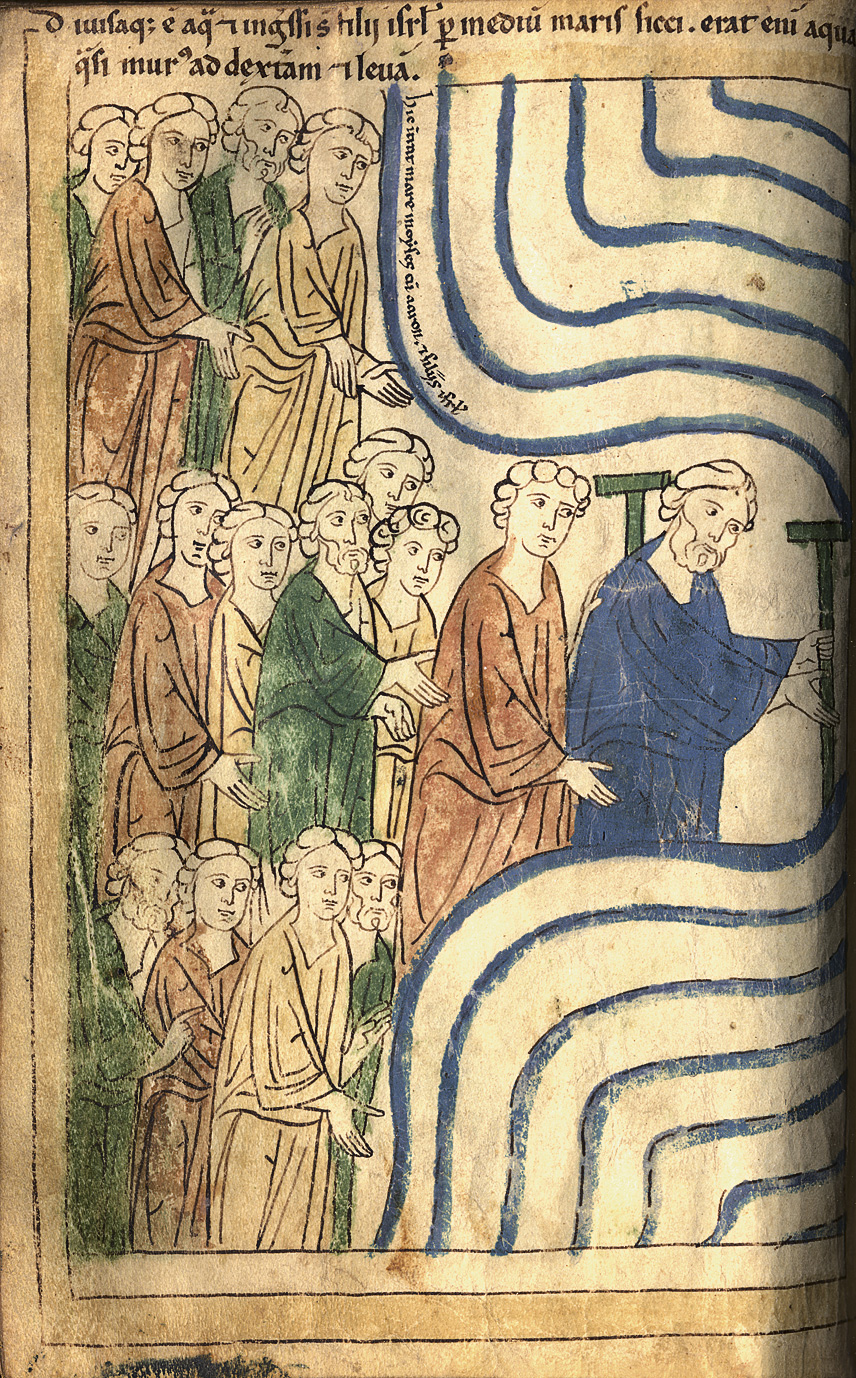 Diuisaq; ē aq̄ ⁊ ingssi s̄ filij isrl̄ ꝑ mediū maris sicci. erat eni᷒ aqua
q̄si mur᷒ ad dextam ⁊ leuā.
hic intrat mare moyses cū aaron, ⁊ filijs isrl̄